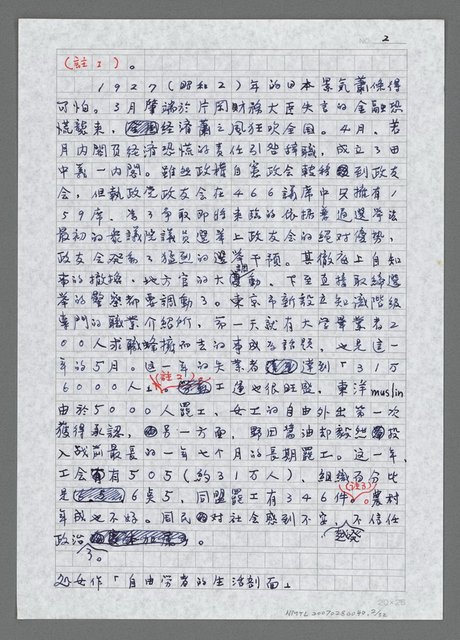 NO. 2
(註1)。
1927(昭和2)年的日本景氣蕭條得
可怕。3月肇端於片岡財務大臣失言的金融恐
慌襲來,經済蕭之風狂吹全国。4月,若
月內閣負経済恐慌的責任引咎辞職,成立3田
中義一內閣。雖然政權自憲政会轉移到政友
会,但執政党政友会在466議席中只擁有1
59席,為3爭取即將來臨的依據普通選举法
最初的衆議院議員選举上政友会的絕对優勢,
政友会発動3猛烈的選举干預。其徹底上自知
事的撤換,地方官的大調動,下至直接取締選
举的警察都要調動3。東京市新設立知識階級
專門的職業介紹所,第一天就有大学畢業者2
00人求職蜂擁而去的事成為話題,也是這一
年的5月。這一年的失業者達到「31万
6000人」(註2)。工運也很旺盛,東洋muslin
由於5000人罷工,女工的自由外出第一次
獲得承認,另一方面,野田醬油却毅然投
入战前最長的一年七个月的長期罷工。這一年,
工会有505(約31万人),組織百分比
是6奌5,同盟罷工有346件(註3)。農村
年成也不好。国民对社会感到不安,不信任
政治越発3。
処女作「自由労者的生活剖面」
20×25
NMTL20070280040,2/32